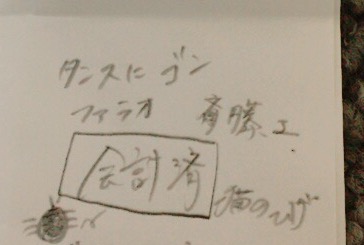 タンスにゴン
ファラオ 斉藤、工
会計済 猫のひげ